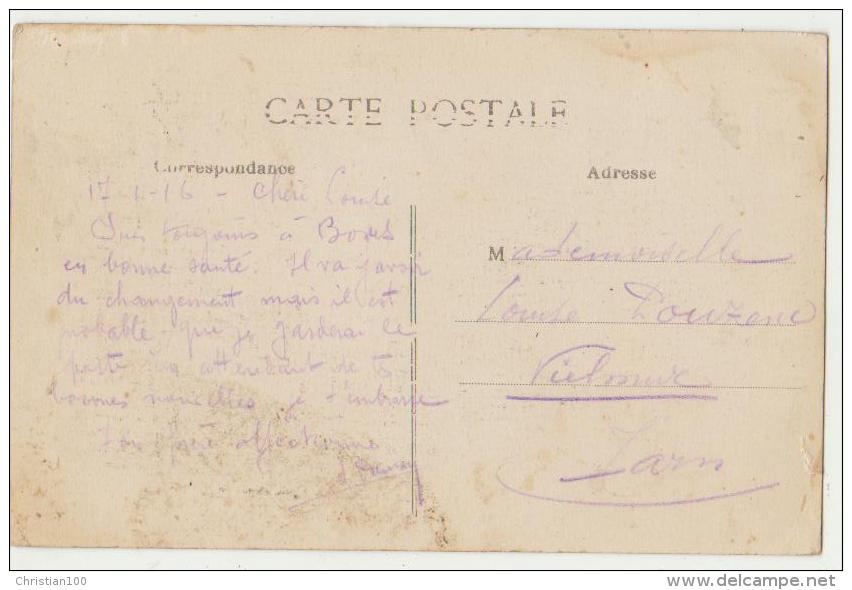 CARTE POSTALE
Correspondance
17-1-16 - Chère Louise
Suis toujours à
en bonne santé. Il va y avoir
du changement mais il est
probable que je garderai le
poste en attendant de tes
bonnes nouvelles je t'embrasse
Ton père affectionné
Adresse
Mademoiselle
Louise
Vielmur
Tarn
Christian100
www.delcampe.net